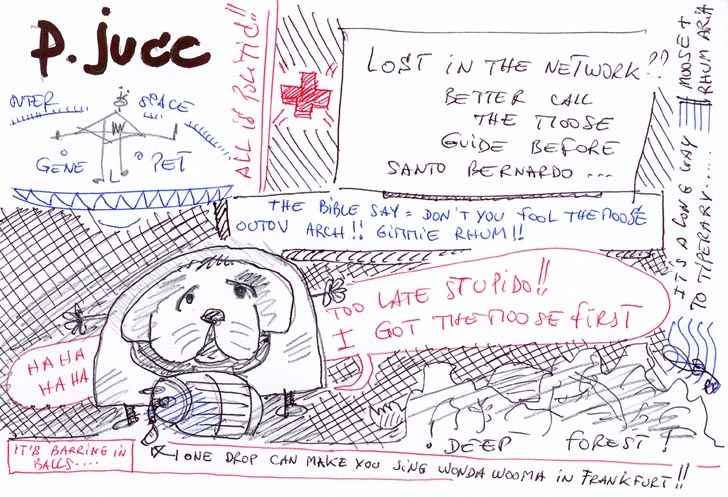 D. jucc
ALL is POLITIC!!
OUTER SPACE
GENE PET
LOST IN THE NETWORK??
BETTER CALL
THE MOOSE
GUIDE BEFORE
SANTO BERNARDO ...
IT'S A LONG WAY MOOSE +
TO TIPERARY...... RHUM ARIA
THE BIBLE SAY = DON'T YOU FOOL THE MOOSE
OUTOV ARCH!! GIMMIE RHUM!!
TOO LATE STUPIDO!!
I GOT THE MOOSE FIRST
HA HA
HA HA
DEEP FOREST!
IT'S BARRING IN
BALLS....
ONE DROP CAN MAKE YOU SING WONDA WOOMA IN FRANKFURT!!